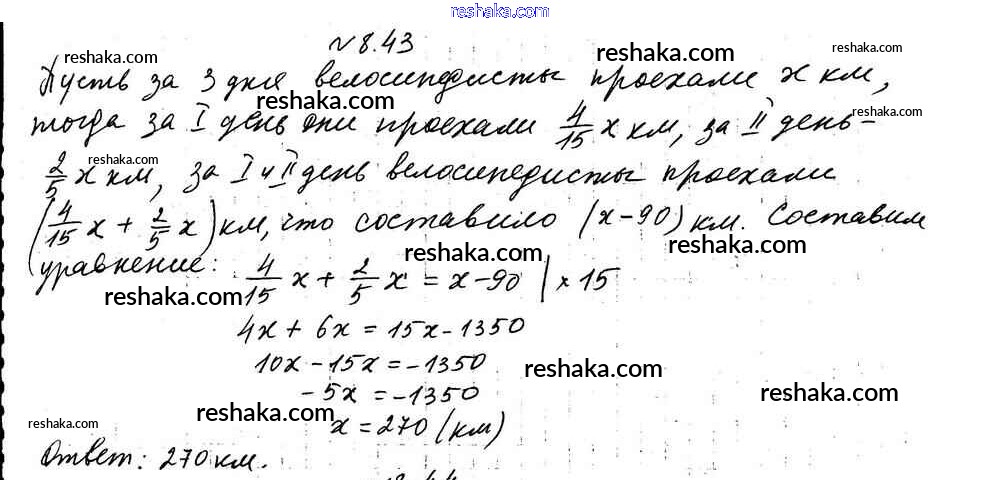 reshaka.com
№ 8.43
reshaka.com reshaka.com
Пусть за 3 дня велосипедисты проехали x км,
reshaka.com reshaka.com
тогда за I день они проехали 4/15 x км, за II день –
reshaka.com
2/5 x км, за I и II день велосипедисты проехали
(4/15 x + 2/5 x) км, что составило (x – 90) км. Составим
reshaka.com reshaka.com
уравнение: 4/15 x + 2/5 x = x – 90 | × 15
reshaka.com
4x + 6x = 15x – 1350
10x – 15x = –1350
reshaka.com
– 5x = –1350
reshaka.com reshaka.com
x = 270 (км)
reshaka.com
Ответ: 270 км.